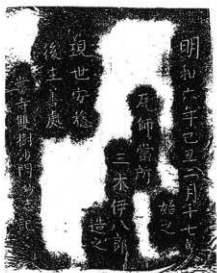 明和六年己丑二月十七日
始之
瓦師當所
三木伊八郎
造之
現世安穏
後生善處
當寺雙樹沙門